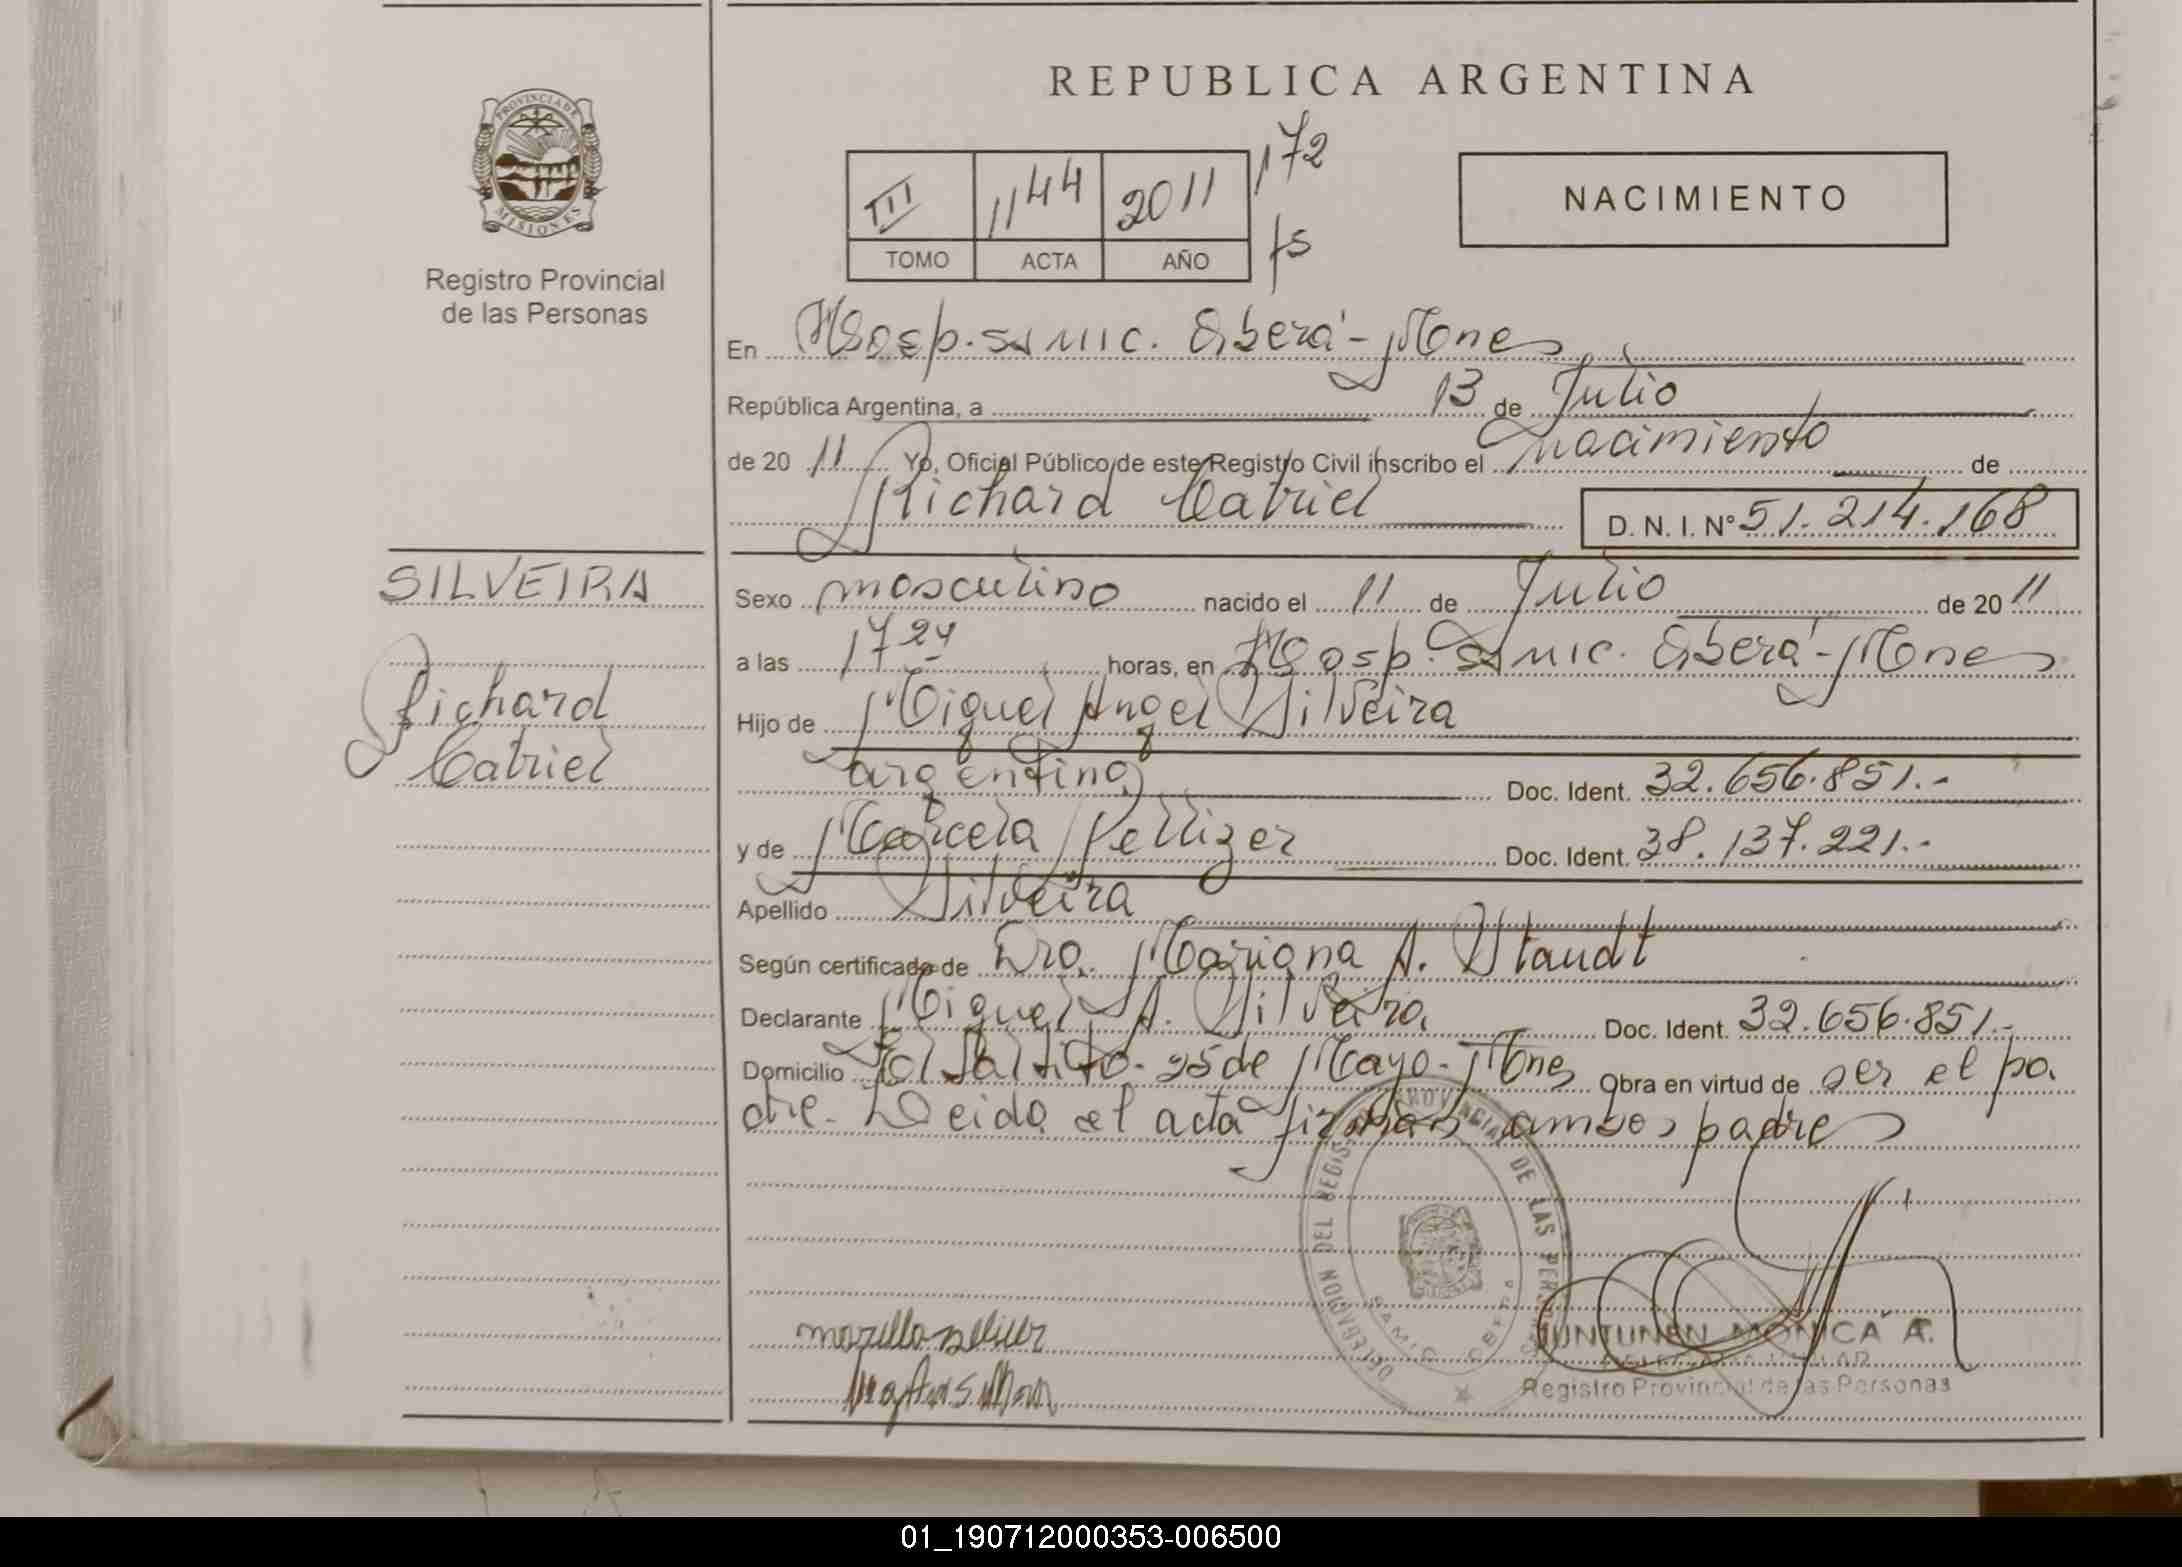 REPUBLICA ARGENTINA
PROVINCIA DE
MISIONES
Registro Provincial
de las Personas
III 1144 2011 172
TOMO ACTA AÑO fs
NACIMIENTO
En Hosp. SAMIC. Oberá - Mones
República Argentina, a 13 de Julio
de 20 11 Yo, Oficial Público de este Registro Civil inscribo el nacimiento de
Richard Catriel D. N. I. Nº 51.214.168
SILVEIRA
Richard
Catriel
Sexo masculino nacido el 11 de Julio de 20 11
a las 17 24 horas, en Hosp. SAMIC. Oberá - Mones
Hijo de Miguel Angel Silveira
argentino Doc. Ident. 32.656.851.-
y de Marcela Pellizer Doc. Ident. 38.137.221.-
Apellido Silveira
Según certificado de Dra. Mariana A. Staudt
Declarante Miguel A. Silveira Doc. Ident. 32.656.851.-
Domicilio El Saltito - 25 de Mayo - Mones Obra en virtud de ser el pa
dre. Leida el acta firman ambos padres
DELEGACION DEL REGIS. PROVINCIAL DE LAS PERSONAS
SAMIC OBERA
JUNTUNEN MONICA A.
Registro Provincial de las Personas
01_190712000353-006500